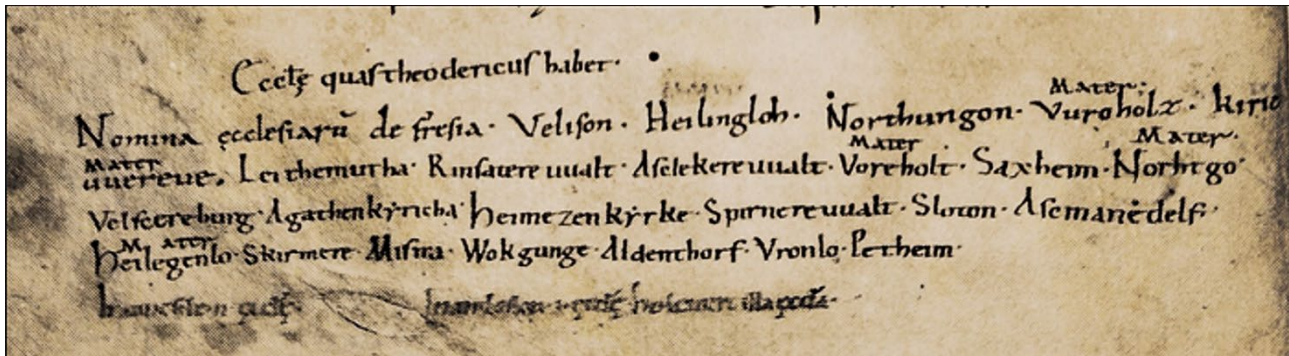 Eccłę quas theodericus habet ·
Mater ·
Nomina ęcclesiarū de fresia · Velison · Heilingloh · Northungon · Vuroholz · kiric
Mater Mater Mater ·
uuereue · Leithemutha · Rinsatereuualt · Aselekereuualt · Voreholt · Saxheim · Northtgo ·
Velsereburg · Agathenkyricha · heimezenkyrke · Spirnereuualt · Sloton · Asemanedelf ·
Mater
heilegenlo · Skirmere · Misna · Wokgunge · Aldenthorf · Vronlo · Petheim ·